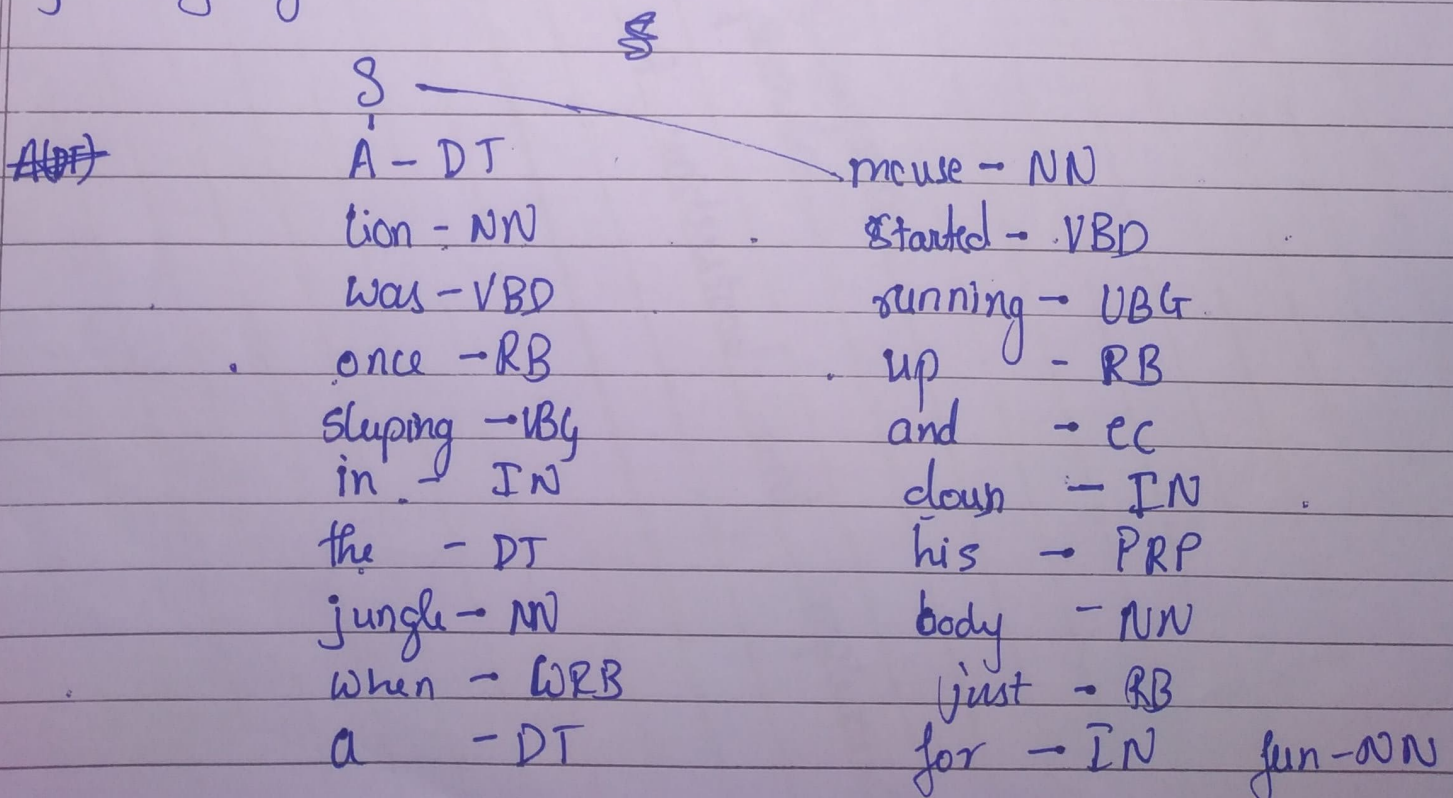 S
A - DT
tion - NN
was - VBD
once - RB
sleeping - VBG
in - IN
the - DT
jungle - NN
when - WRB
a - DT
mouse - NN
started - VBD
running - VBG
up - RB
and - cc
down - IN
his - PRP
body - NN
just - RB
for - IN fun - NN